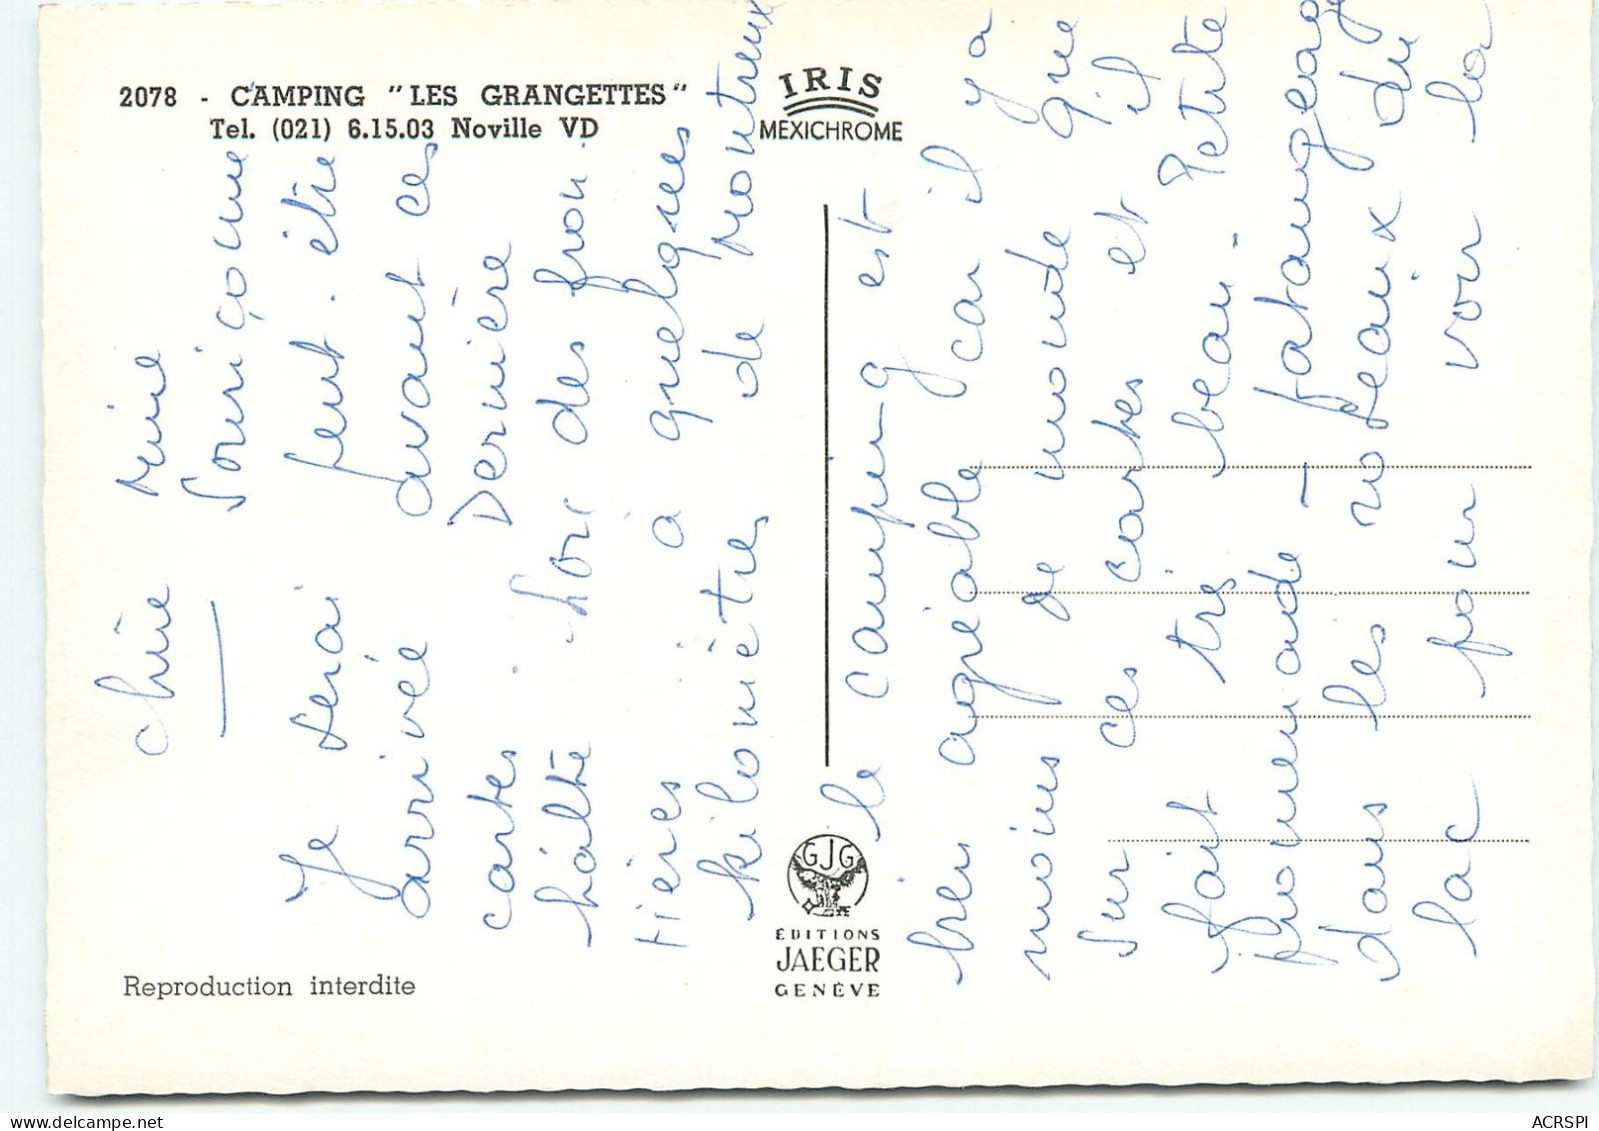 2078 - CAMPING "LES GRANGETTES"
Tel. (021) 6.15.03 Noville VD
IRIS
MEXICHROME
Chère Mme
Souriçoune
Je serai peut. être
arrivée avant ces
cartes. Dernière
hâlte hors des fron.
tières à quelques
kilomètres de Montreux
le camping est
bien agréable car il y a
moins de monde que
sur ces cartes et il
fait très beau - Petite
promenade - pataugeage
dans les roseaux du
lac pour voir la
GJG
ÉDITIONS
JAEGER
GENÈVE
Reproduction interdite
ACRSPI